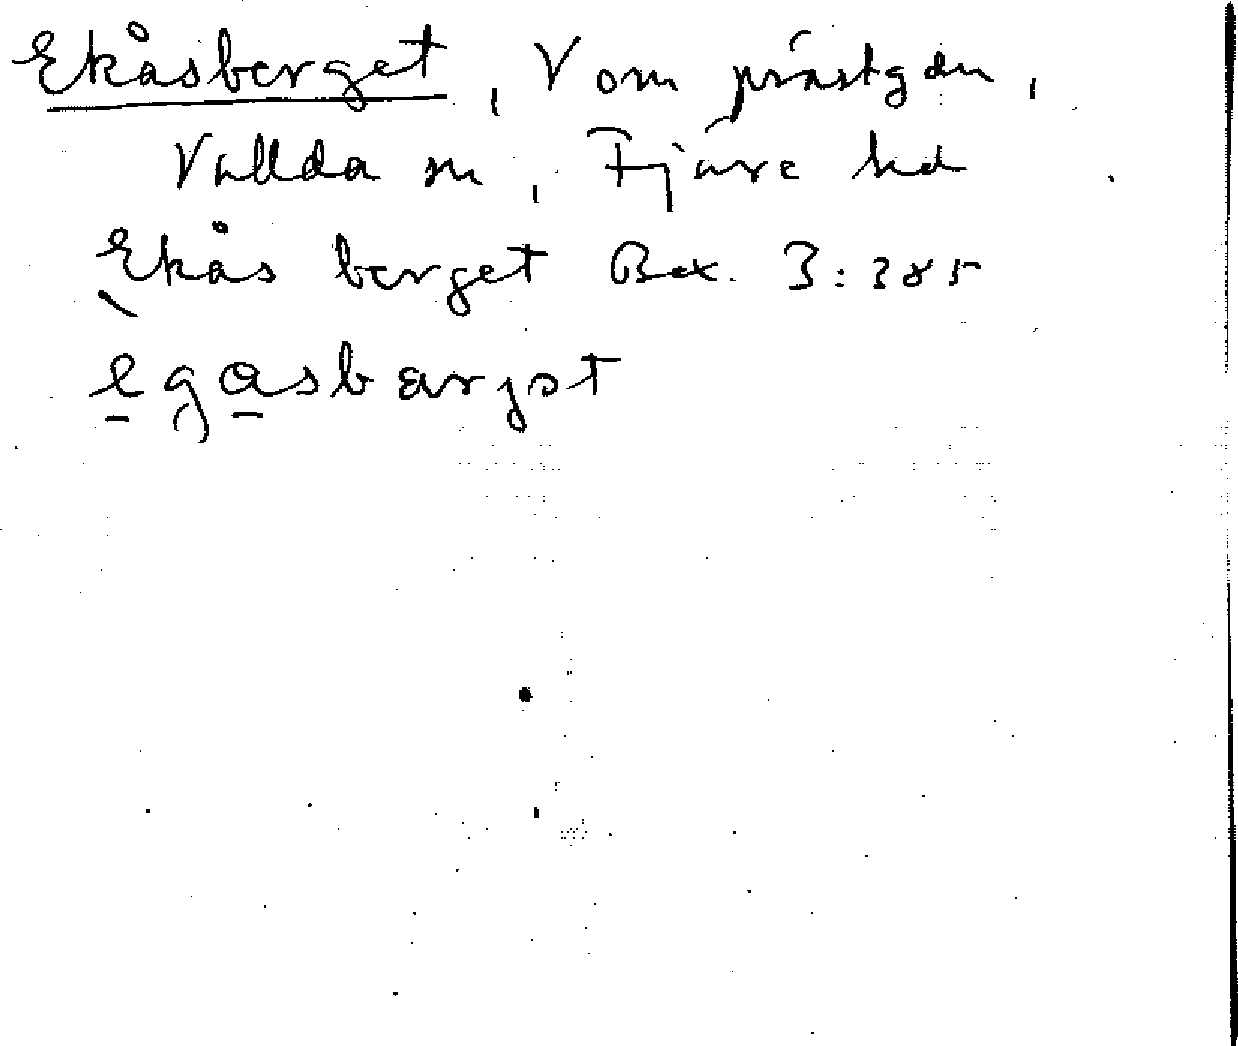 Ekåsberget, V om prästgdn,
Vallda sn, Fjäre hd
Ekås berget Bex. 3:385
egasbærjət